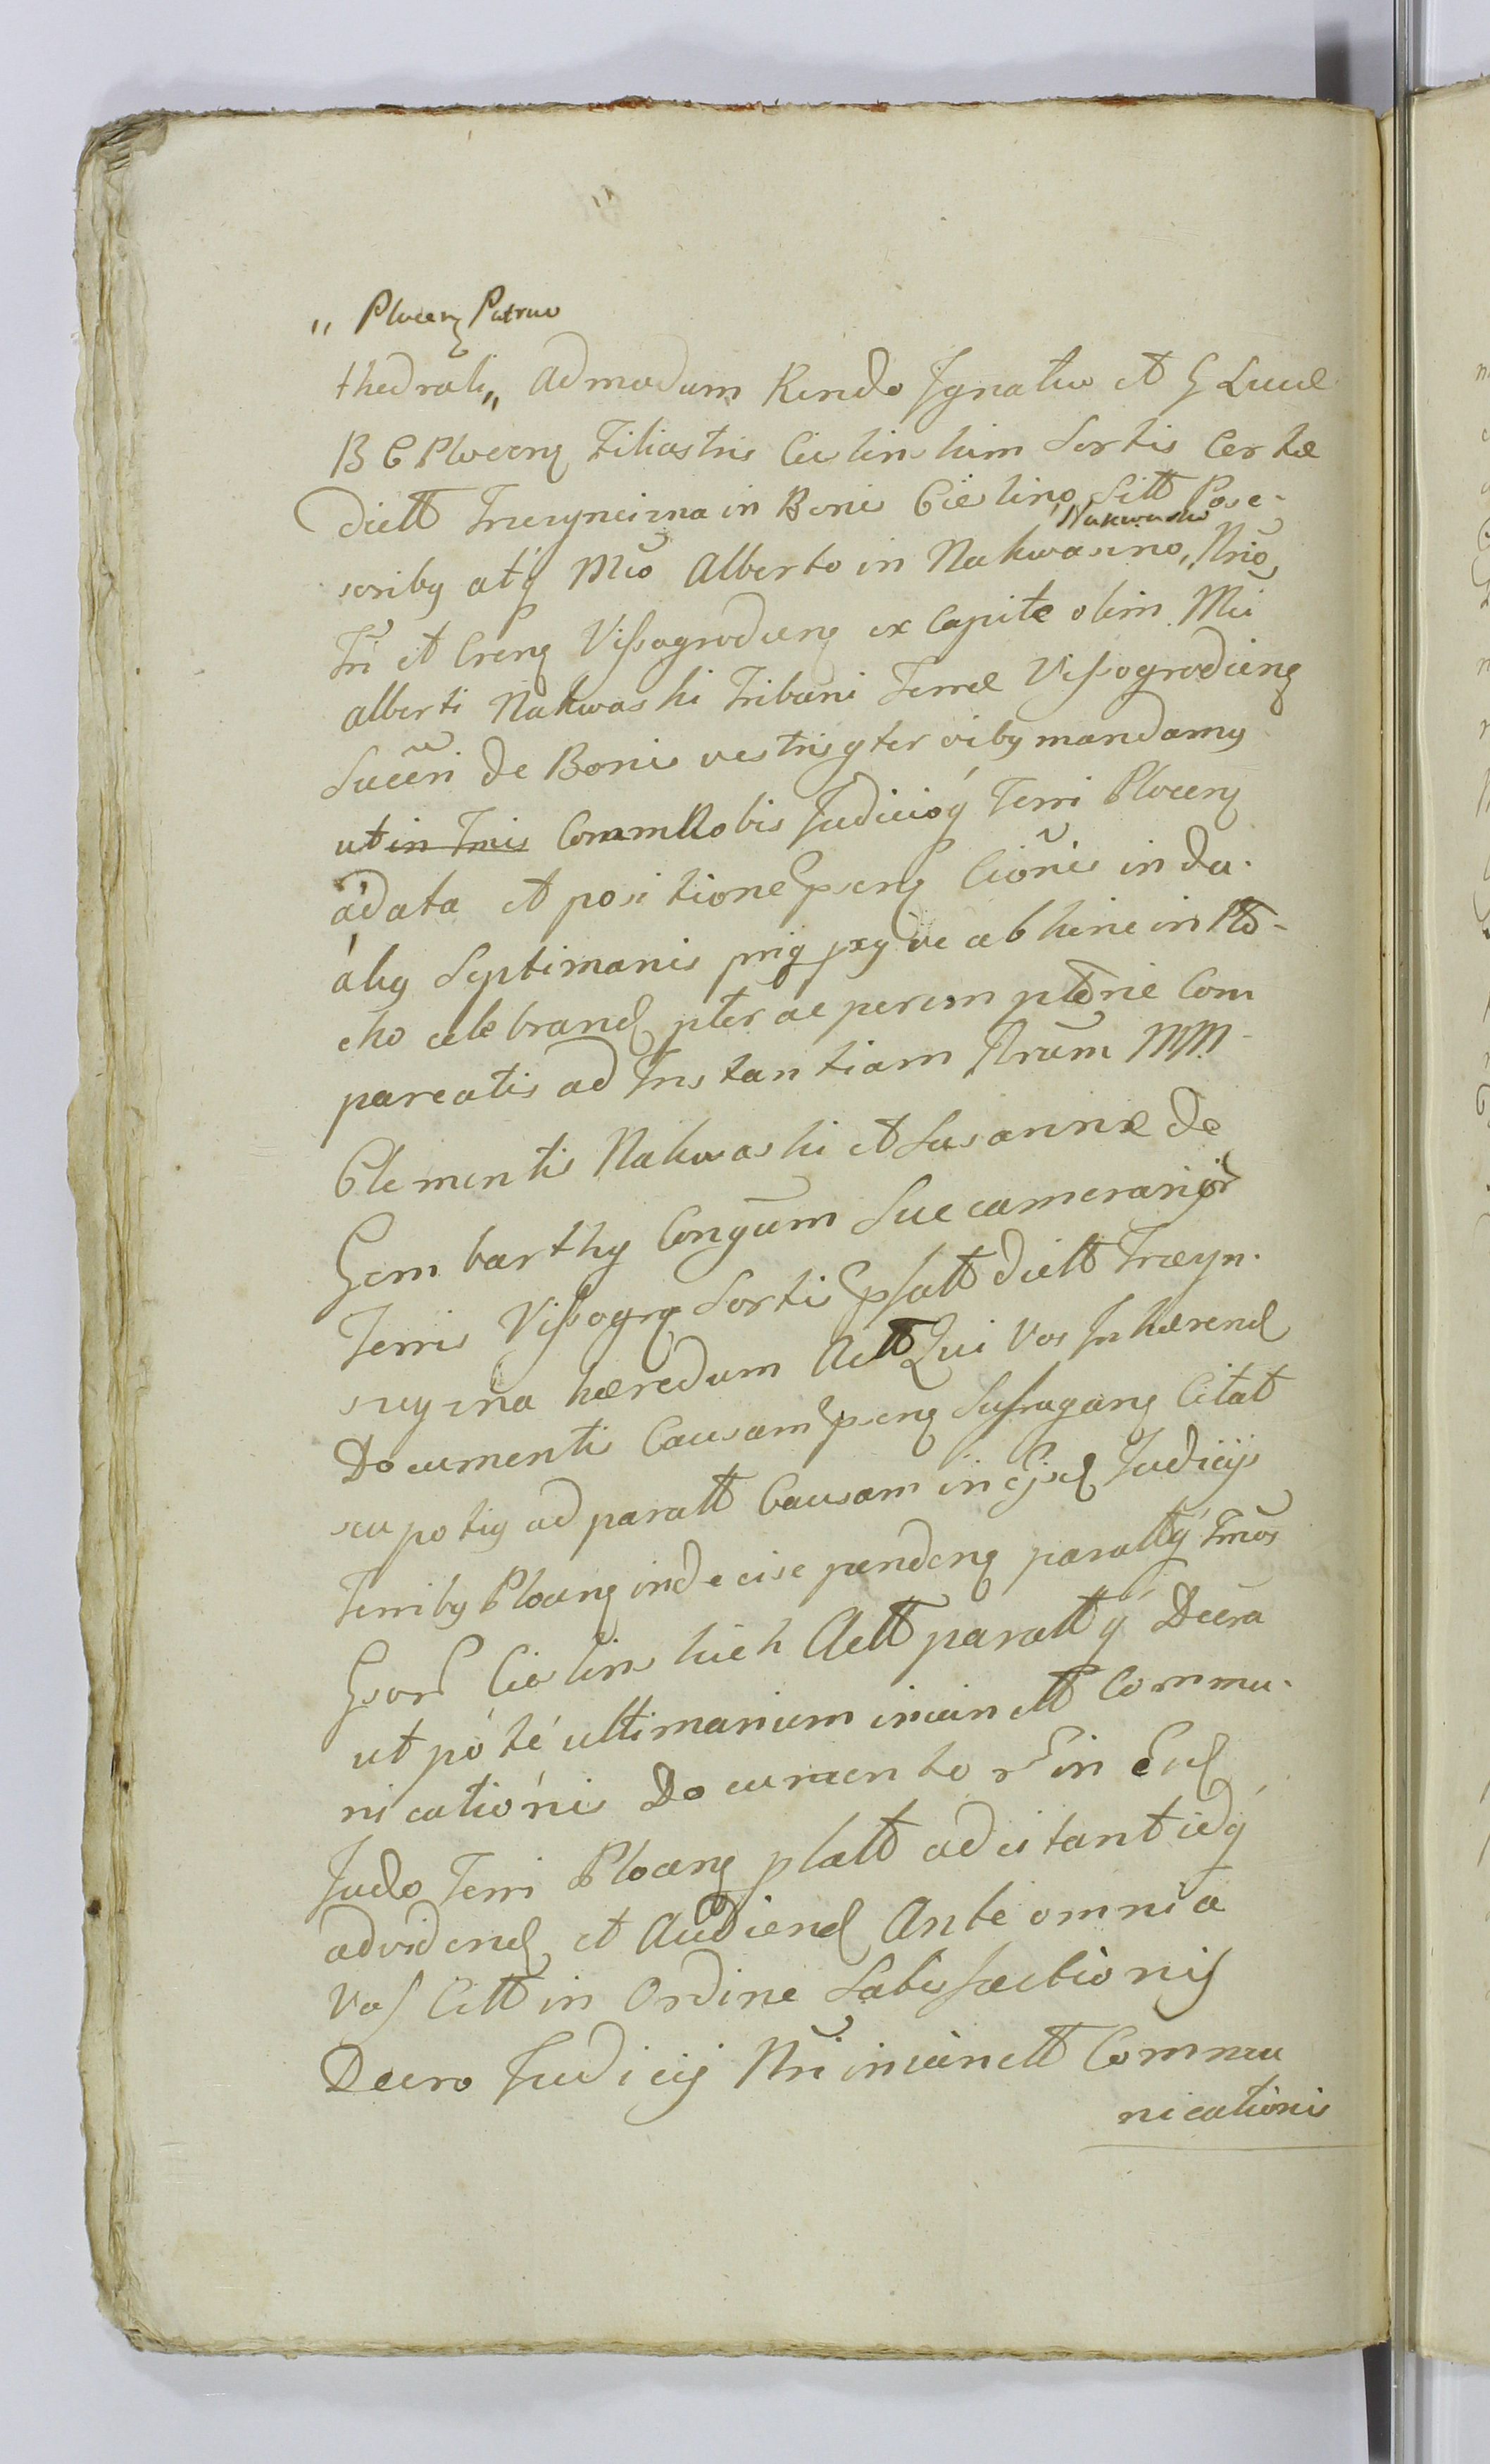 " Plocen Patruo
thedrali " admodum Rendo Ignatio et G Lucæ
B C Plocen Filiastris Cieslinskim Sortis Certæ
dictt Trczyncizna in Bonis Cieslino sitt Posse-
soriby atq Mco Alberto in Nakwasino " Nakwaski Nrio
Tri et Cren Vissogrodien ex Capite olim Mci
Alberti Nakwaski Tribuni Terræ Vissogrodien
Succri de Bonis vestris gter oiby mandamy
ut in Tmis Comm Nobis Judicioq Terri Plocen
á data et positione psen Cionis in du-
aby Septimanis prig pxy ve abhinc in Pło-
cko celebrand pter ac peremptorie Com
pareatis ad Instantiam Nrum MM
Clementis Nakwaski et Susannæ de
Gembarthy Congum Succamerarior
Terris Vissogr Sortis psatt dictt Trczyn-
sczyzna hæredum Actt Qui Vos Inhærend
Documentis Causam psen Sufragan Citat
seu potig ad paratt Causam in Ejsd Judicijs
Terriby Plocen indecise penden parattq Tmos
Gsor Cieslinskich Actt parattq Decra
ut póté ultimarium iniunctt Commu-
nicationis Documentor in Eod
Judo Terri Plocen platt adcitant idq
ad vidend et Audiend Ante omnia
Vos Citt in Ordine Satisfactionis
Decro Judicij Nri iniunctt Commu
nicationis